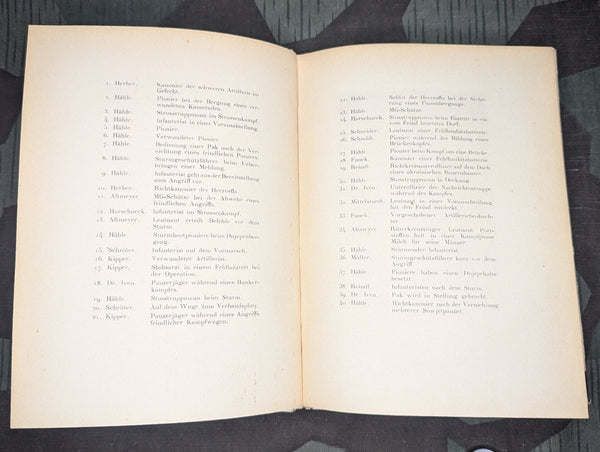 1. Herber. Kanonier der schweren Artillerie im
Gefecht.
2. Hähle. Pionier bei der Bergung eines ver-
wundeten Kameraden.
3. Hähle. Stosstruppmann im Strassenkampf.
4. Hähle. Infanterist in einer Vorausabteilung
5. Hähle. Pionier.
6. Hähle. Verwundeter Pionier.
7. Hähle. Bedienung einer Pak nach der Ver-
nichtung eines feindlichen Panzers.
8. Hähle. Sturmgeschützführer beim Ueber-
bringen einer Meldung.
9. Hähle. Infanterist geht aus der Bereitstellung
zum Angriff vor.
10. Herber. Richtkanonier der Heeresfla
11. Altmeyer. MG-Schütze bei der Abwehr eines
feindlichen Angriffs.
12. Hartschneck. Infanterist im Strassenkampf.
13. Altmeyer. Leutnant erteilt Befehle vor dem
Sturm.
14. Hähle. Sturmbootpioniere beim Dnjeprüber-
gang.
15. Schröter. Infanterist auf dem Vormarsch.
16. Kipper. Verwundeter Artillerist.
17. Kipper. Stabsarzt in einem Feldlazarett bei
der Operation.
18. Dr. Iven. Panzerjäger während eines Bunker-
kampfes.
19. Hähle. Stosstruppmann beim Sturm.
20. Schröter. Auf dem Wege zum Verbandsplatz.
21. Kipper. Panzerjäger während eines Angriffs
feindlicher Kampfwagen.
22. Hähle. Soldat der Heeresfla bei der Siche-
rung eines Flussübergangs.
23. Hähle. MG-Schütze.
24. Hartschneck. Stosstruppmann beim Eintritt in ein
vom Feind besetztes Dorf.
25. Schneider. Leutnant einer Feldhaubitzbatterie.
26. Schmidt. Pionier während der Bildung eines
Brückenkopfes.
27. Hähle. Pionier beim Kampf um eine Brücke
28. Funck. Kanonier einer Feldhaubitzbatterie.
29. Reindl. Richtkreisunteroffizier auf dem Dach
eines ukrainischen Bauernhauses
30. Hähle. Stosstruppmann in Deckung.
31. Dr. Iven. Unteroffizier der Nachrichtentruppe
während des Kampfes.
32. Mittelstaedt. Leutnant in einer Vorausabteilung
hat den Feind entdeckt.
33. Funck. Vorgeschobener Artilleriebeobach-
ter.
34. Altmeyer. Ritterkreuzträger Leutnant
holt in einer Kampfpause
Milch für seine Männer.
35. Hähle. Stürmender Infanterist.
36. Müller. Sturmgeschützführer kurz vor dem
Angriff
37. Hähle. Pioniere haben einen Dnjeprkahn
besetzt
38. Reindl. Infanteristen nach dem Sturm.
39. Dr. Iven. Pak wird in Stellung gebracht.
40. Hähle. Richtkanonier nach der Vernichtung
mehrerer Sowjetpanzer.